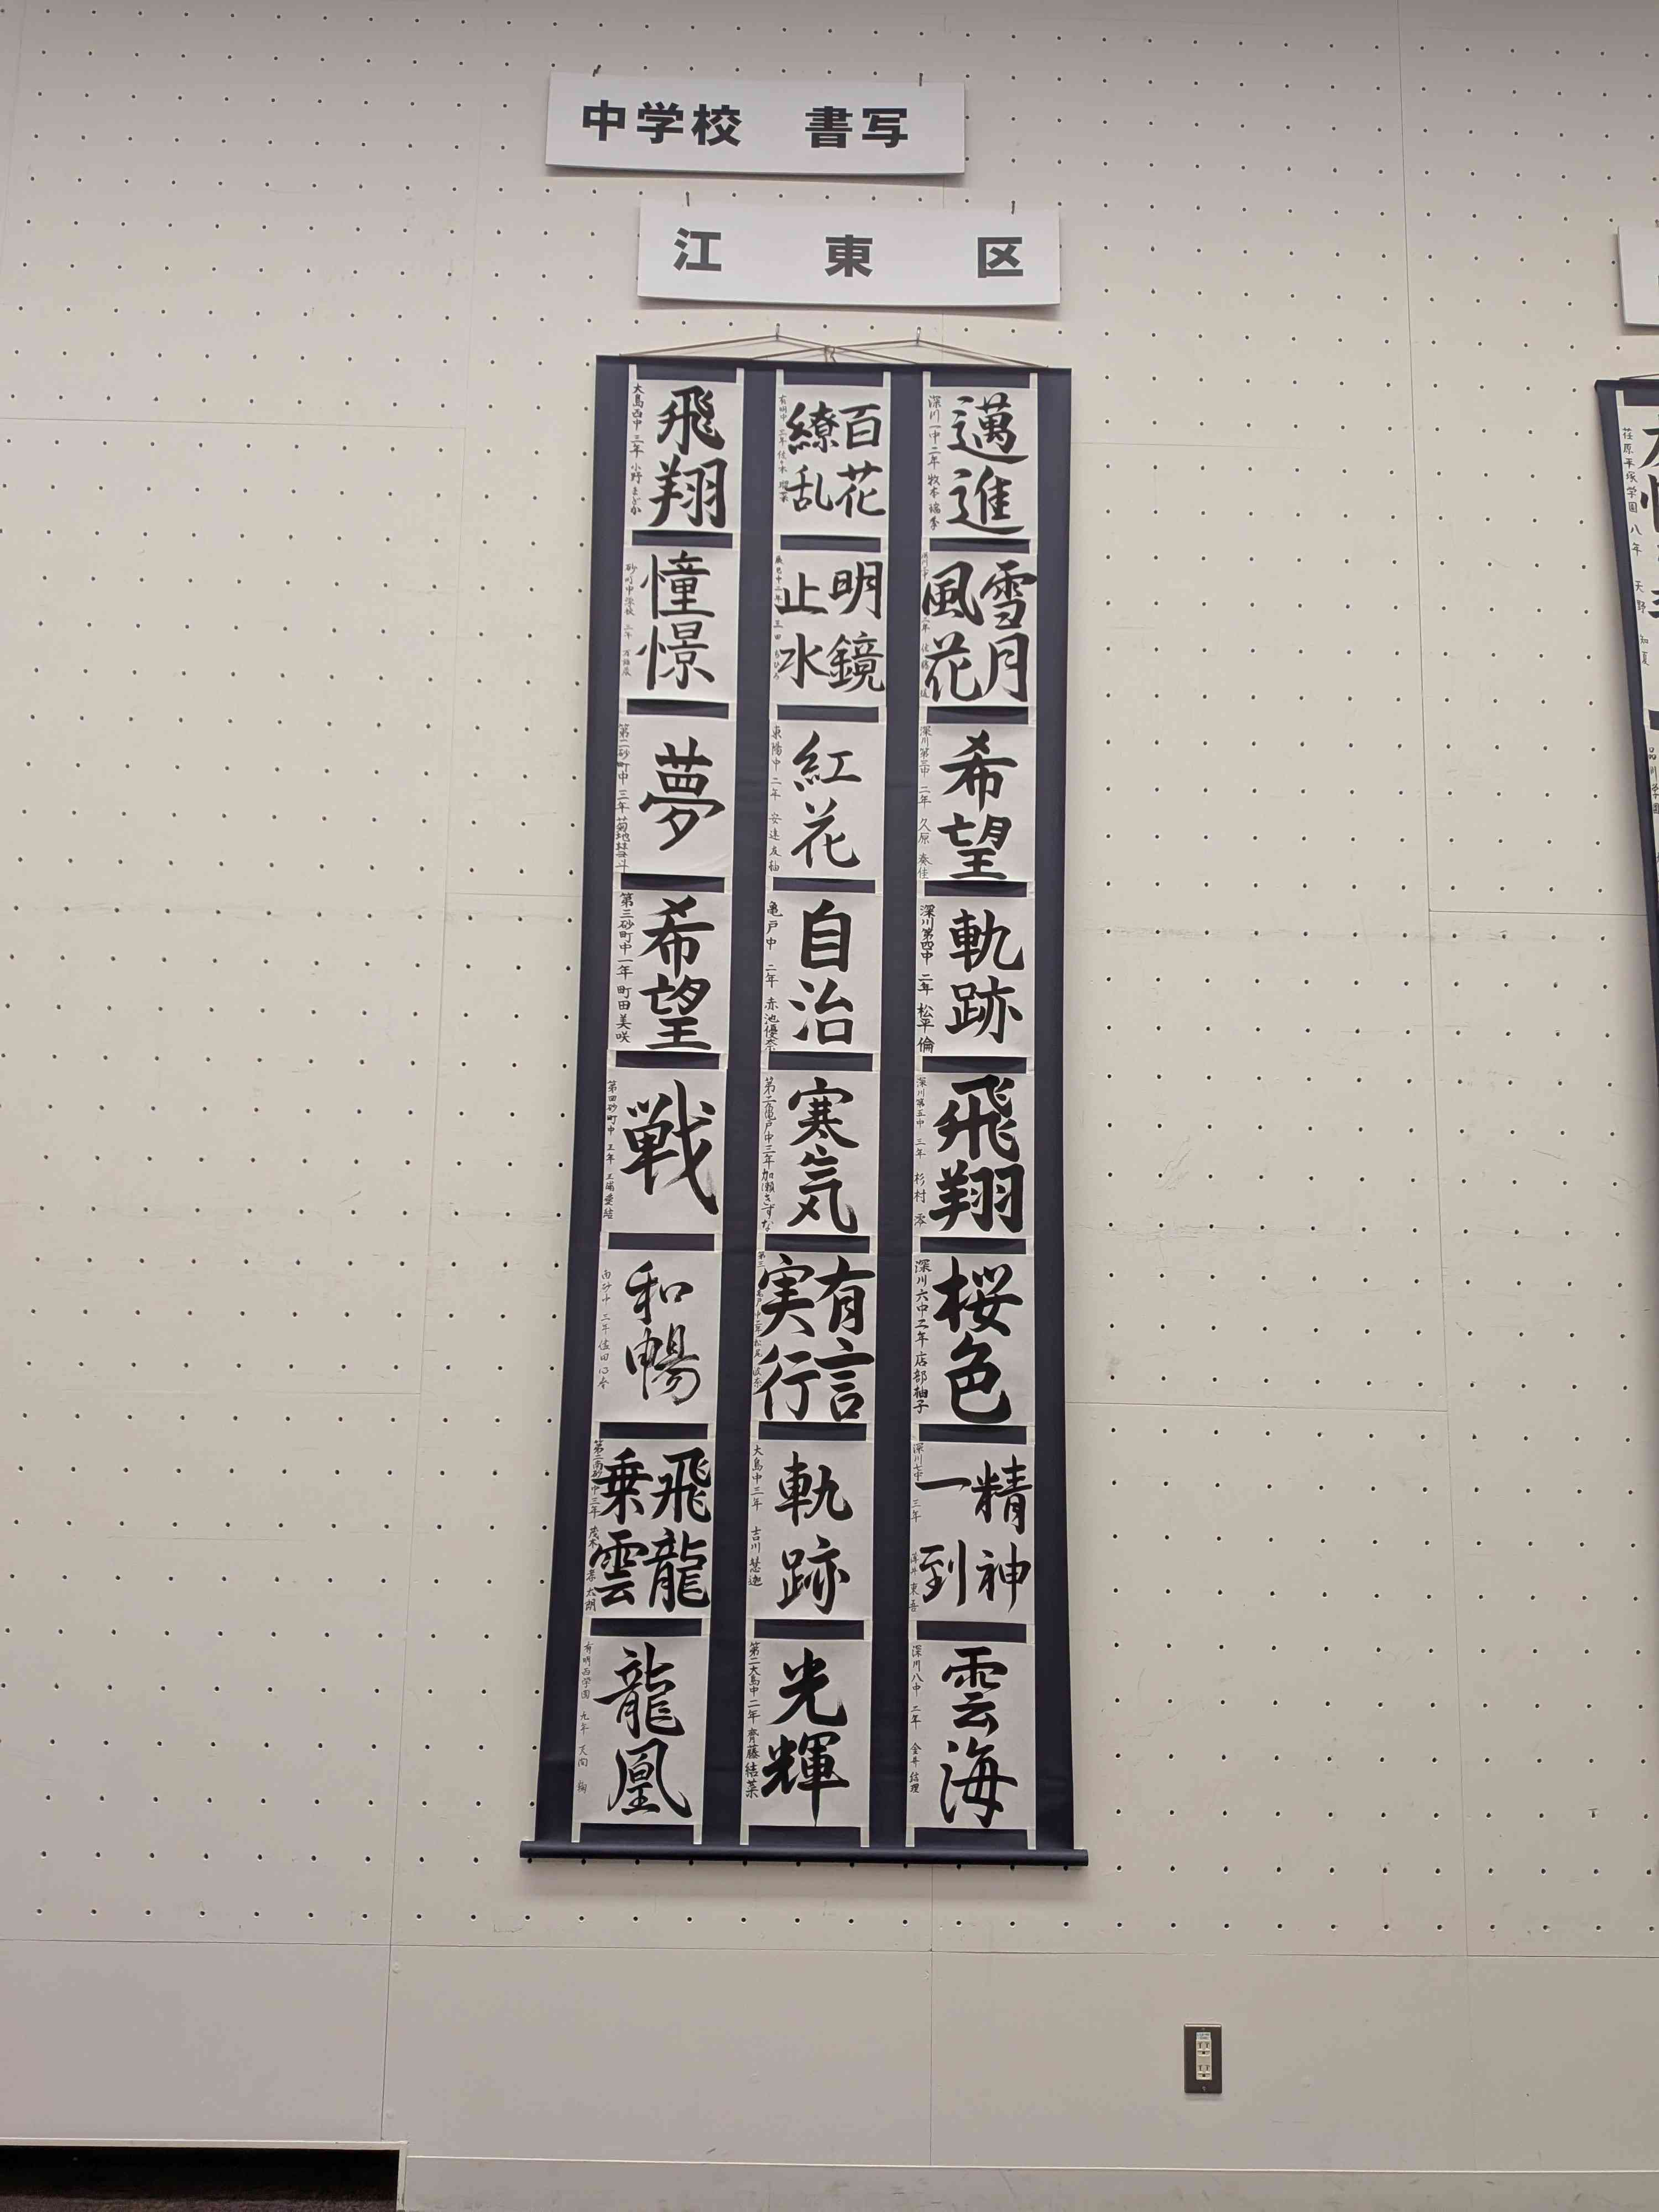 中学校 書写
江東区
邁進
深川一中 二年 牧本
雪月
風花
二年
希望
深川第三中 二年 久原 奏佳
軌跡
深川第四中 二年 松平 倫
飛翔
深川第五中 三年 杉村 零
桜色
深川六中 二年 店部 柚子
精神
一到
深川七中 三年 東吾
雲海
深川八中 二年 金井 結理
百花
繚乱
有明中 三年 佐々木
明鏡
止水
辰巳中 二年
紅花
東陽中 二年 安達 友釉
自治
亀戸中 二年 赤池優奈
寒気
第二亀戸中 三年 加瀬きずな
有言
実行
第三亀戸中 二年 松尾
軌跡
大島中 三年 吉川
光輝
第二大島中 二年 齊藤 結菜
飛翔
大島西中 三年 小野 まどか
憧憬
砂町中学校 三年
夢
第二砂町中 三年 菊地
希望
第三砂町中 一年 町田 美咲
戦
第四砂町中
和暢
南砂中 三年
飛龍
乗雲
第二南砂中 三年 茂木 孝太朗
龍凰
有明西学園 九年
荏原平塚学園 八年 天野